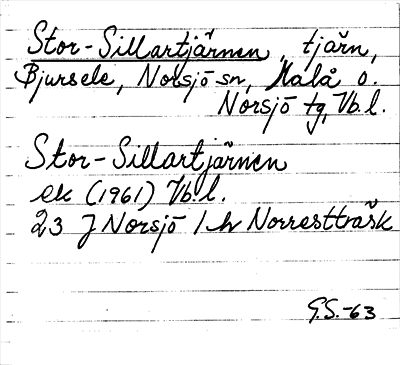 Stor-Sillartjärnen, tjärn,
Bjursele, Norsjö sn, Malå o.
Norsjö tg, Vb.l.
Stor-Sillartjärnen
ek (1961) Vb.l.
23 J Norsjö 1h Norresttrask
G.S.-63